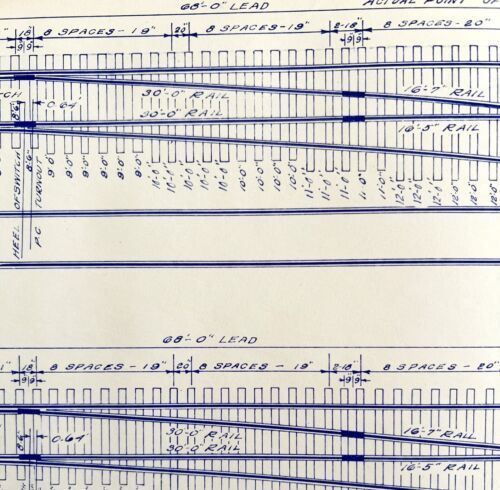 68'-0" LEAD
ACTUAL POINT OF
18" 8 SPACES-19" 20" 8 SPACES-19" 2-18" 8 SPACES-20"
9 9 9" 9"
30'-0" RAIL 16'-7" RAIL
0.64'
30'-0" RAIL 16'-5" RAIL
8'-6" 8'-6" 9'-0" 9'-0" 9'-0" 9'-0" 9'-0" 9'-0" 9'-0" 10'-0" 10'-0" 10'-0" 10'-0" 10'-0" 10'-0" 10'-0" 10'-0" 10'-0" 10'-0" 11'-0" 11'-0" 11'-0" 11'-0" 11'-0" 11'-0" 12'-0" 12'-0" 12'-0" 12'-0" 12'-0" 12'-0"
HEEL OF SWITCH
P.C. TURNOUT
68'-0" LEAD
18" 8 SPACES-19" 20" 8 SPACES-19" 2-18" 8 SPACES-20"
9 9 9" 9"
30'-0" RAIL 16'-7" RAIL
8'-6" 0.64'
30'-0" RAIL 16'-5" RAIL